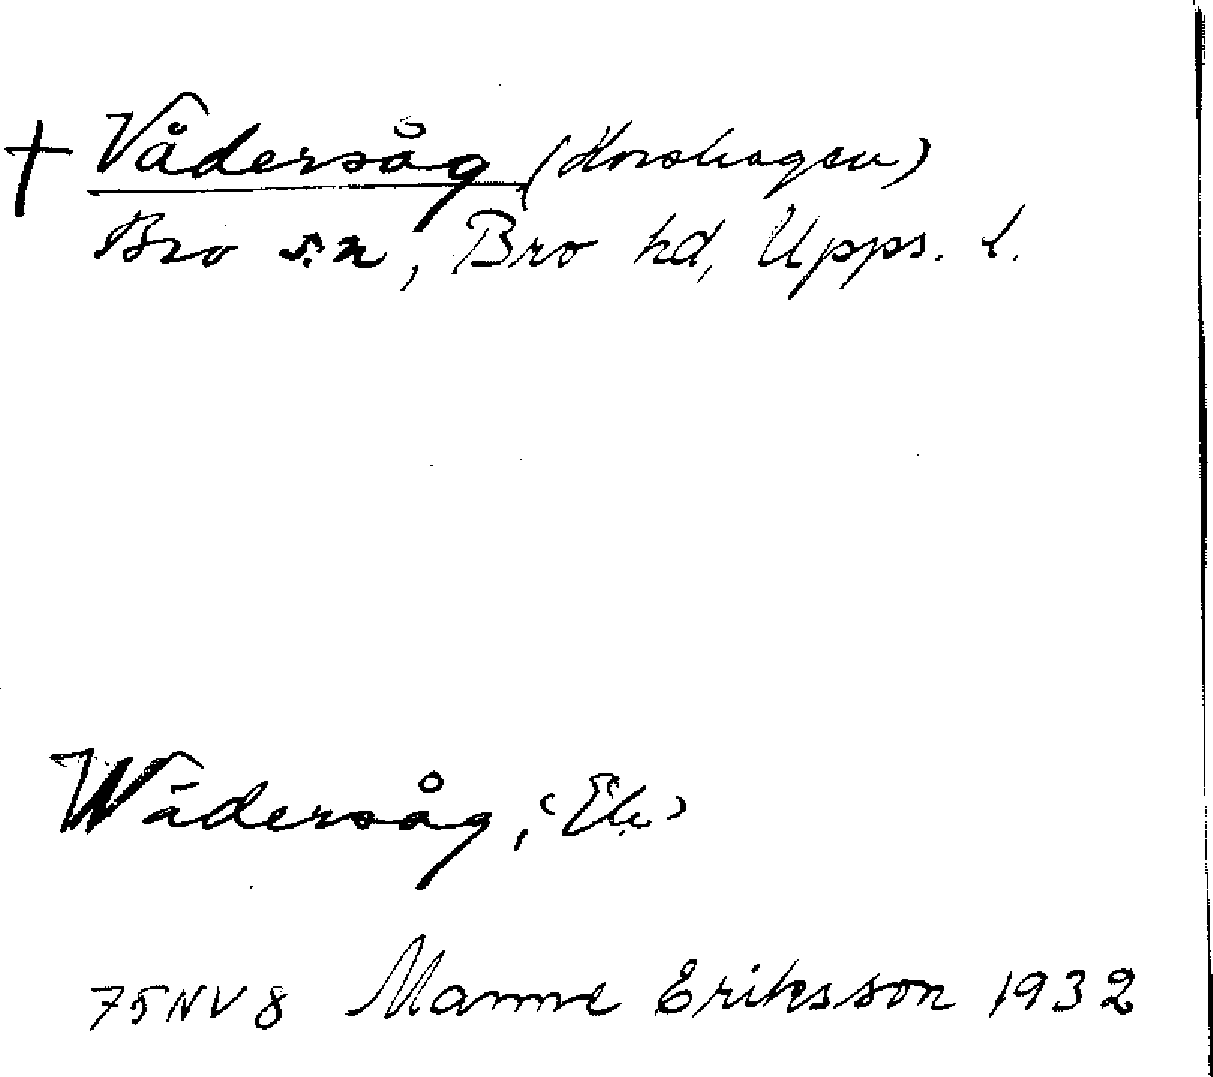 † Vådersåg (Horshagen)
Bro sn, Bro hd, Upps. l.
Wädersåg, (Ek.)
75NV8 Manne Eriksson 1932